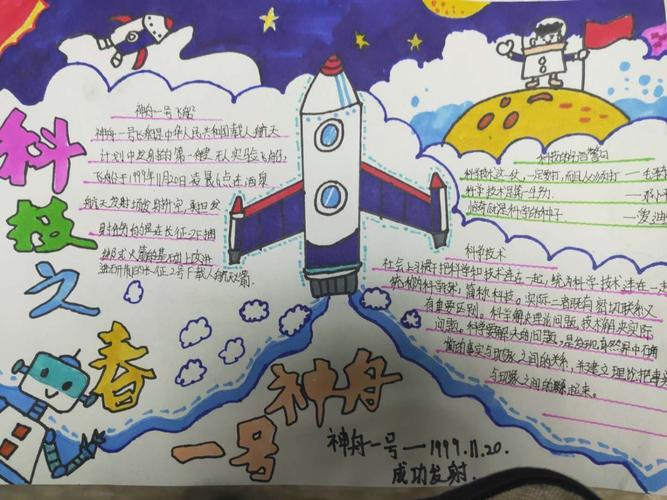 科技之春
神舟一号飞船
神舟一号飞船是中华人民共和国载人航天
计划中发射的第一艘无人实验飞船,
飞船于1999年11月20日凌晨6点在酒泉
航天发射场发射升空,
射的是在长征-2F捆
绑式火箭的基础上改进
进研制的长征2号F载人航天火箭.
科技的名言警句
科学技术是第一生产力.
科学技术
社会上习惯于把科学和技术连在一起,统为科学技术连在一起
统称为科学技术,简称科技。实际二者既有密切联系又
有重要区别。科学解决理论问题,技术解决实际
问题。科学要解决的问题,是发现自然界中确
凿的事实与现象之间的关系,并建立理论把事实
与现象之间的联系起来。
神舟
一号
神舟一号—1999.11.20.
成功发射.